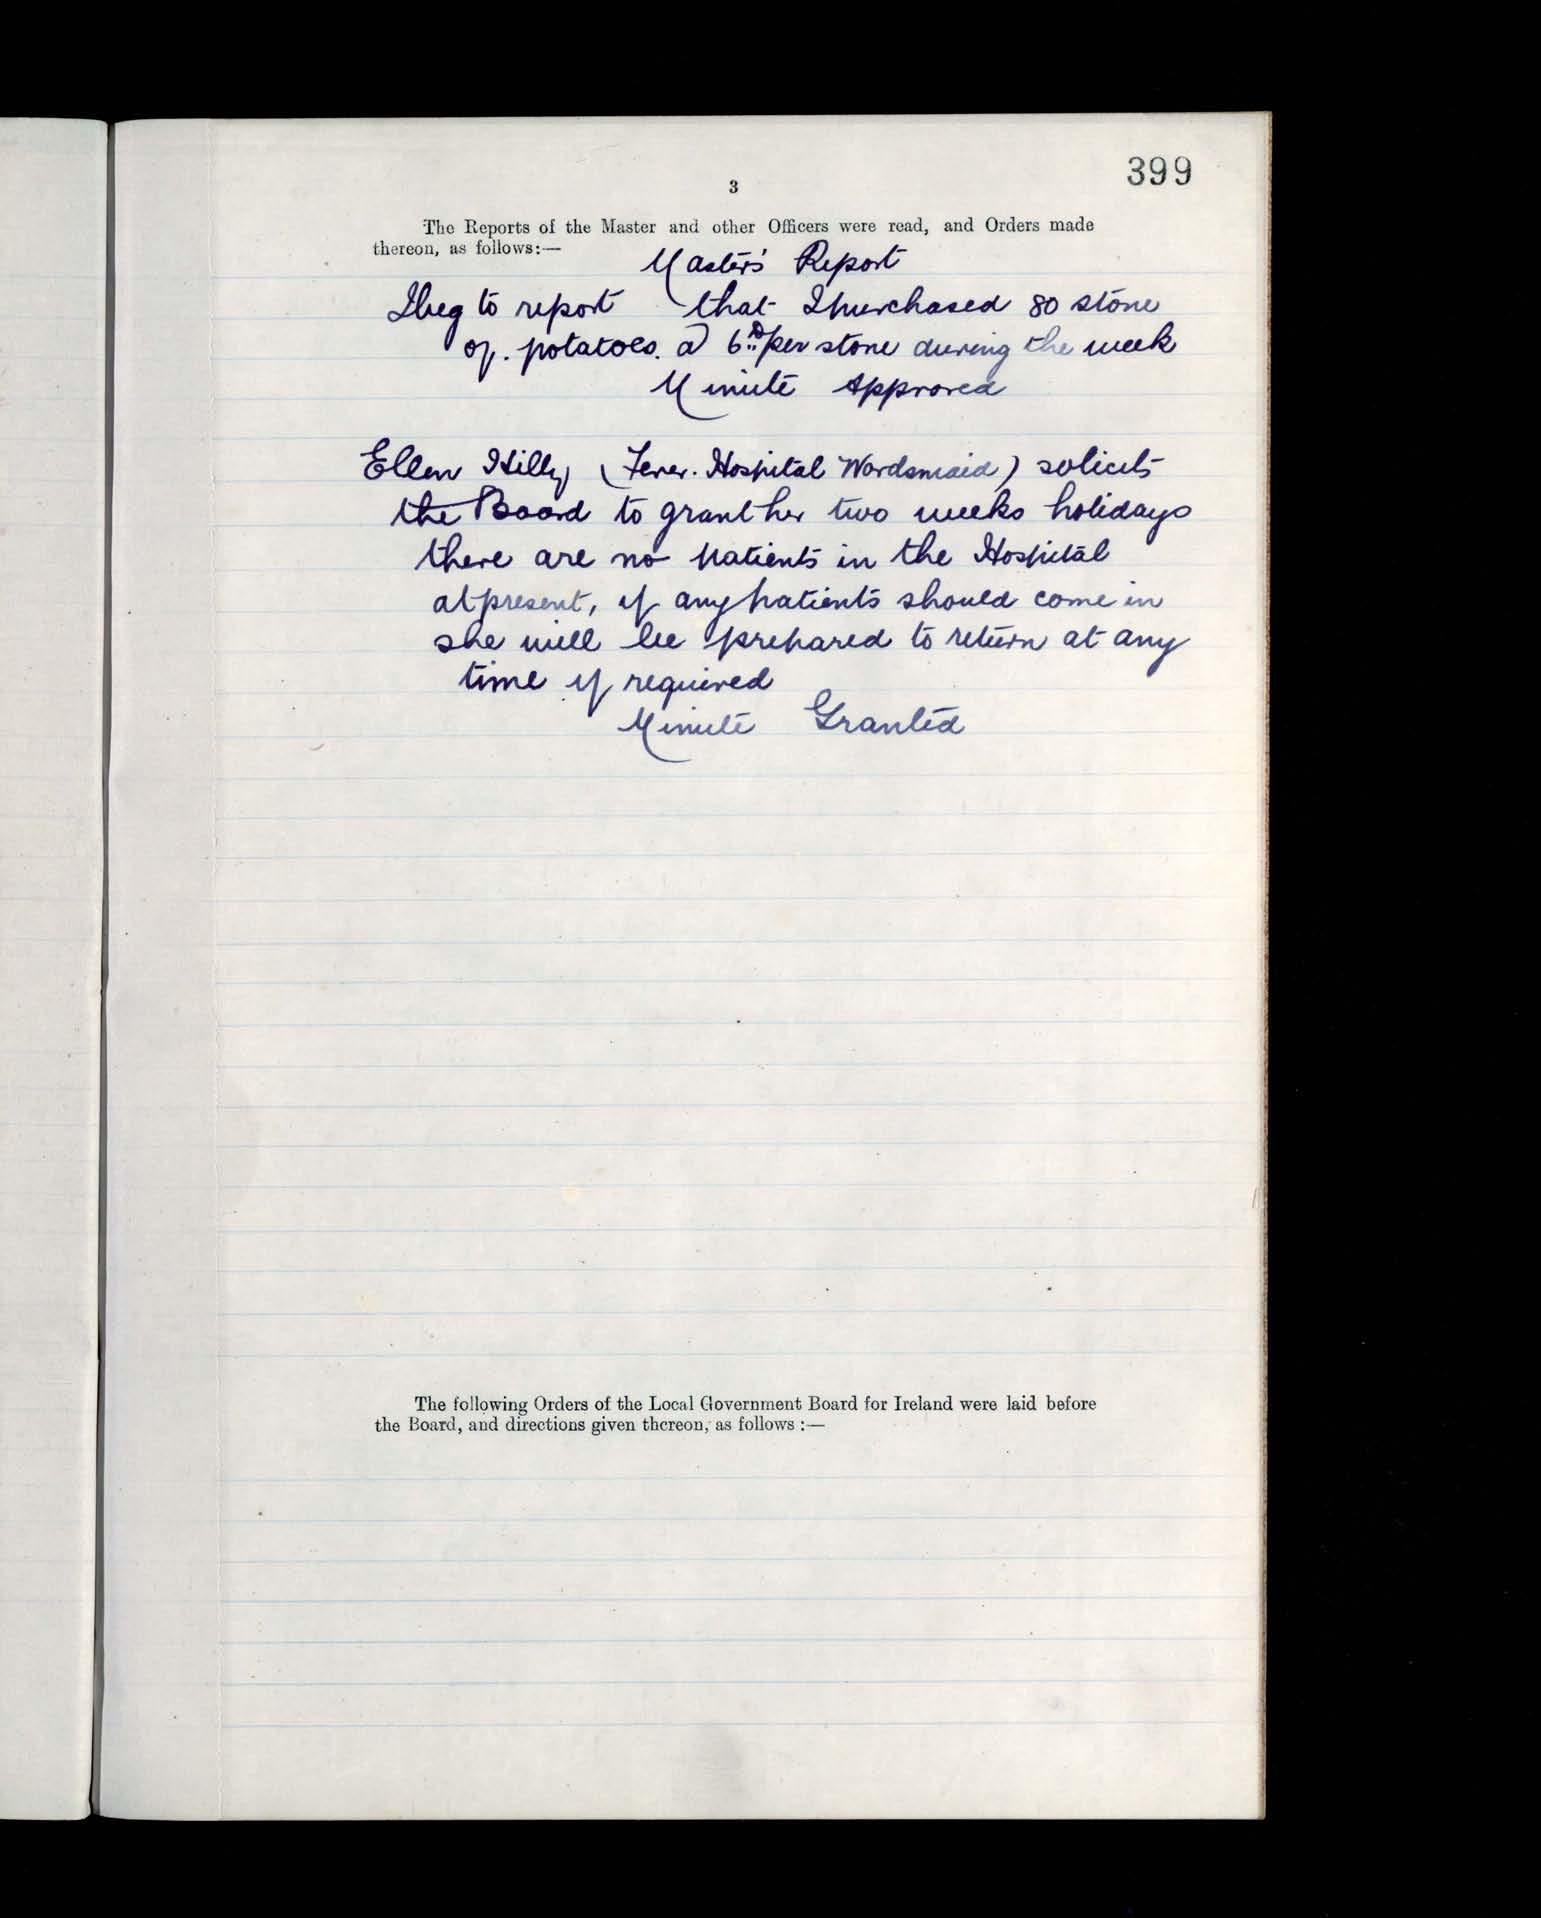 399
3
The Reports of the Master and other Officers were read, and Orders made
thereon, as follows:—
Master's Report
I beg to report that I purchased 80 stone
of. potatoes. @ 6D per stone during the week
Minute Approved
Ellen Hilly (Fever. Hospital Wardsmaid) solicits
the Board to grant her two weeks holidays
there are no patients in the Hospital
at present, if any patients should come in
she will be prepared to return at any
time if required
Minute Granted
The following Orders of the Local Government Board for Ireland were laid before
the Board, and directions given thereon, as follows :—